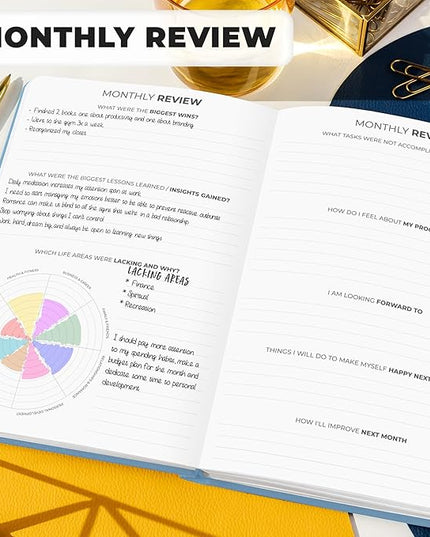 MONTHLY REVIEW
MONTHLY REVIEW
WHAT WERE THE BIGGEST WINS?
- Finished 2 books one about productivity and one about branding
- Went to the gym 3x a week
- Reorganized my closet
WHAT WERE THE BIGGEST LESSONS LEARNED / INSIGHTS GAINED?
Daily meditation increases my attention span at work
I need to start managing my emotions better to be able to prevent reactive outbursts
Romance can make us blind to all the signs that we're in a bad relationship
Stop worrying about things I can't control
Work hard, dream big, and always be open to learning new things
WHICH LIFE AREAS WERE LACKING AND WHY?
HEALTH & FITNESS
BUSINESS & CAREER
FAMILY & FRIENDS
PERSONAL DEVELOPMENT
LACKING AREAS
* Finance
* Spiritual
* Recreation
I should pay more attention
to my spending habits, make a
budget plan for the month and
dedicate some time to personal
development
MONTHLY REV
WHAT TASKS WERE NOT ACCOMPL
HOW DO I FEEL ABOUT MY PROG
I AM LOOKING FORWARD TO
THINGS I WILL DO TO MAKE MYSELF HAPPY NEXT
HOW I'LL IMPROVE NEXT MONTH